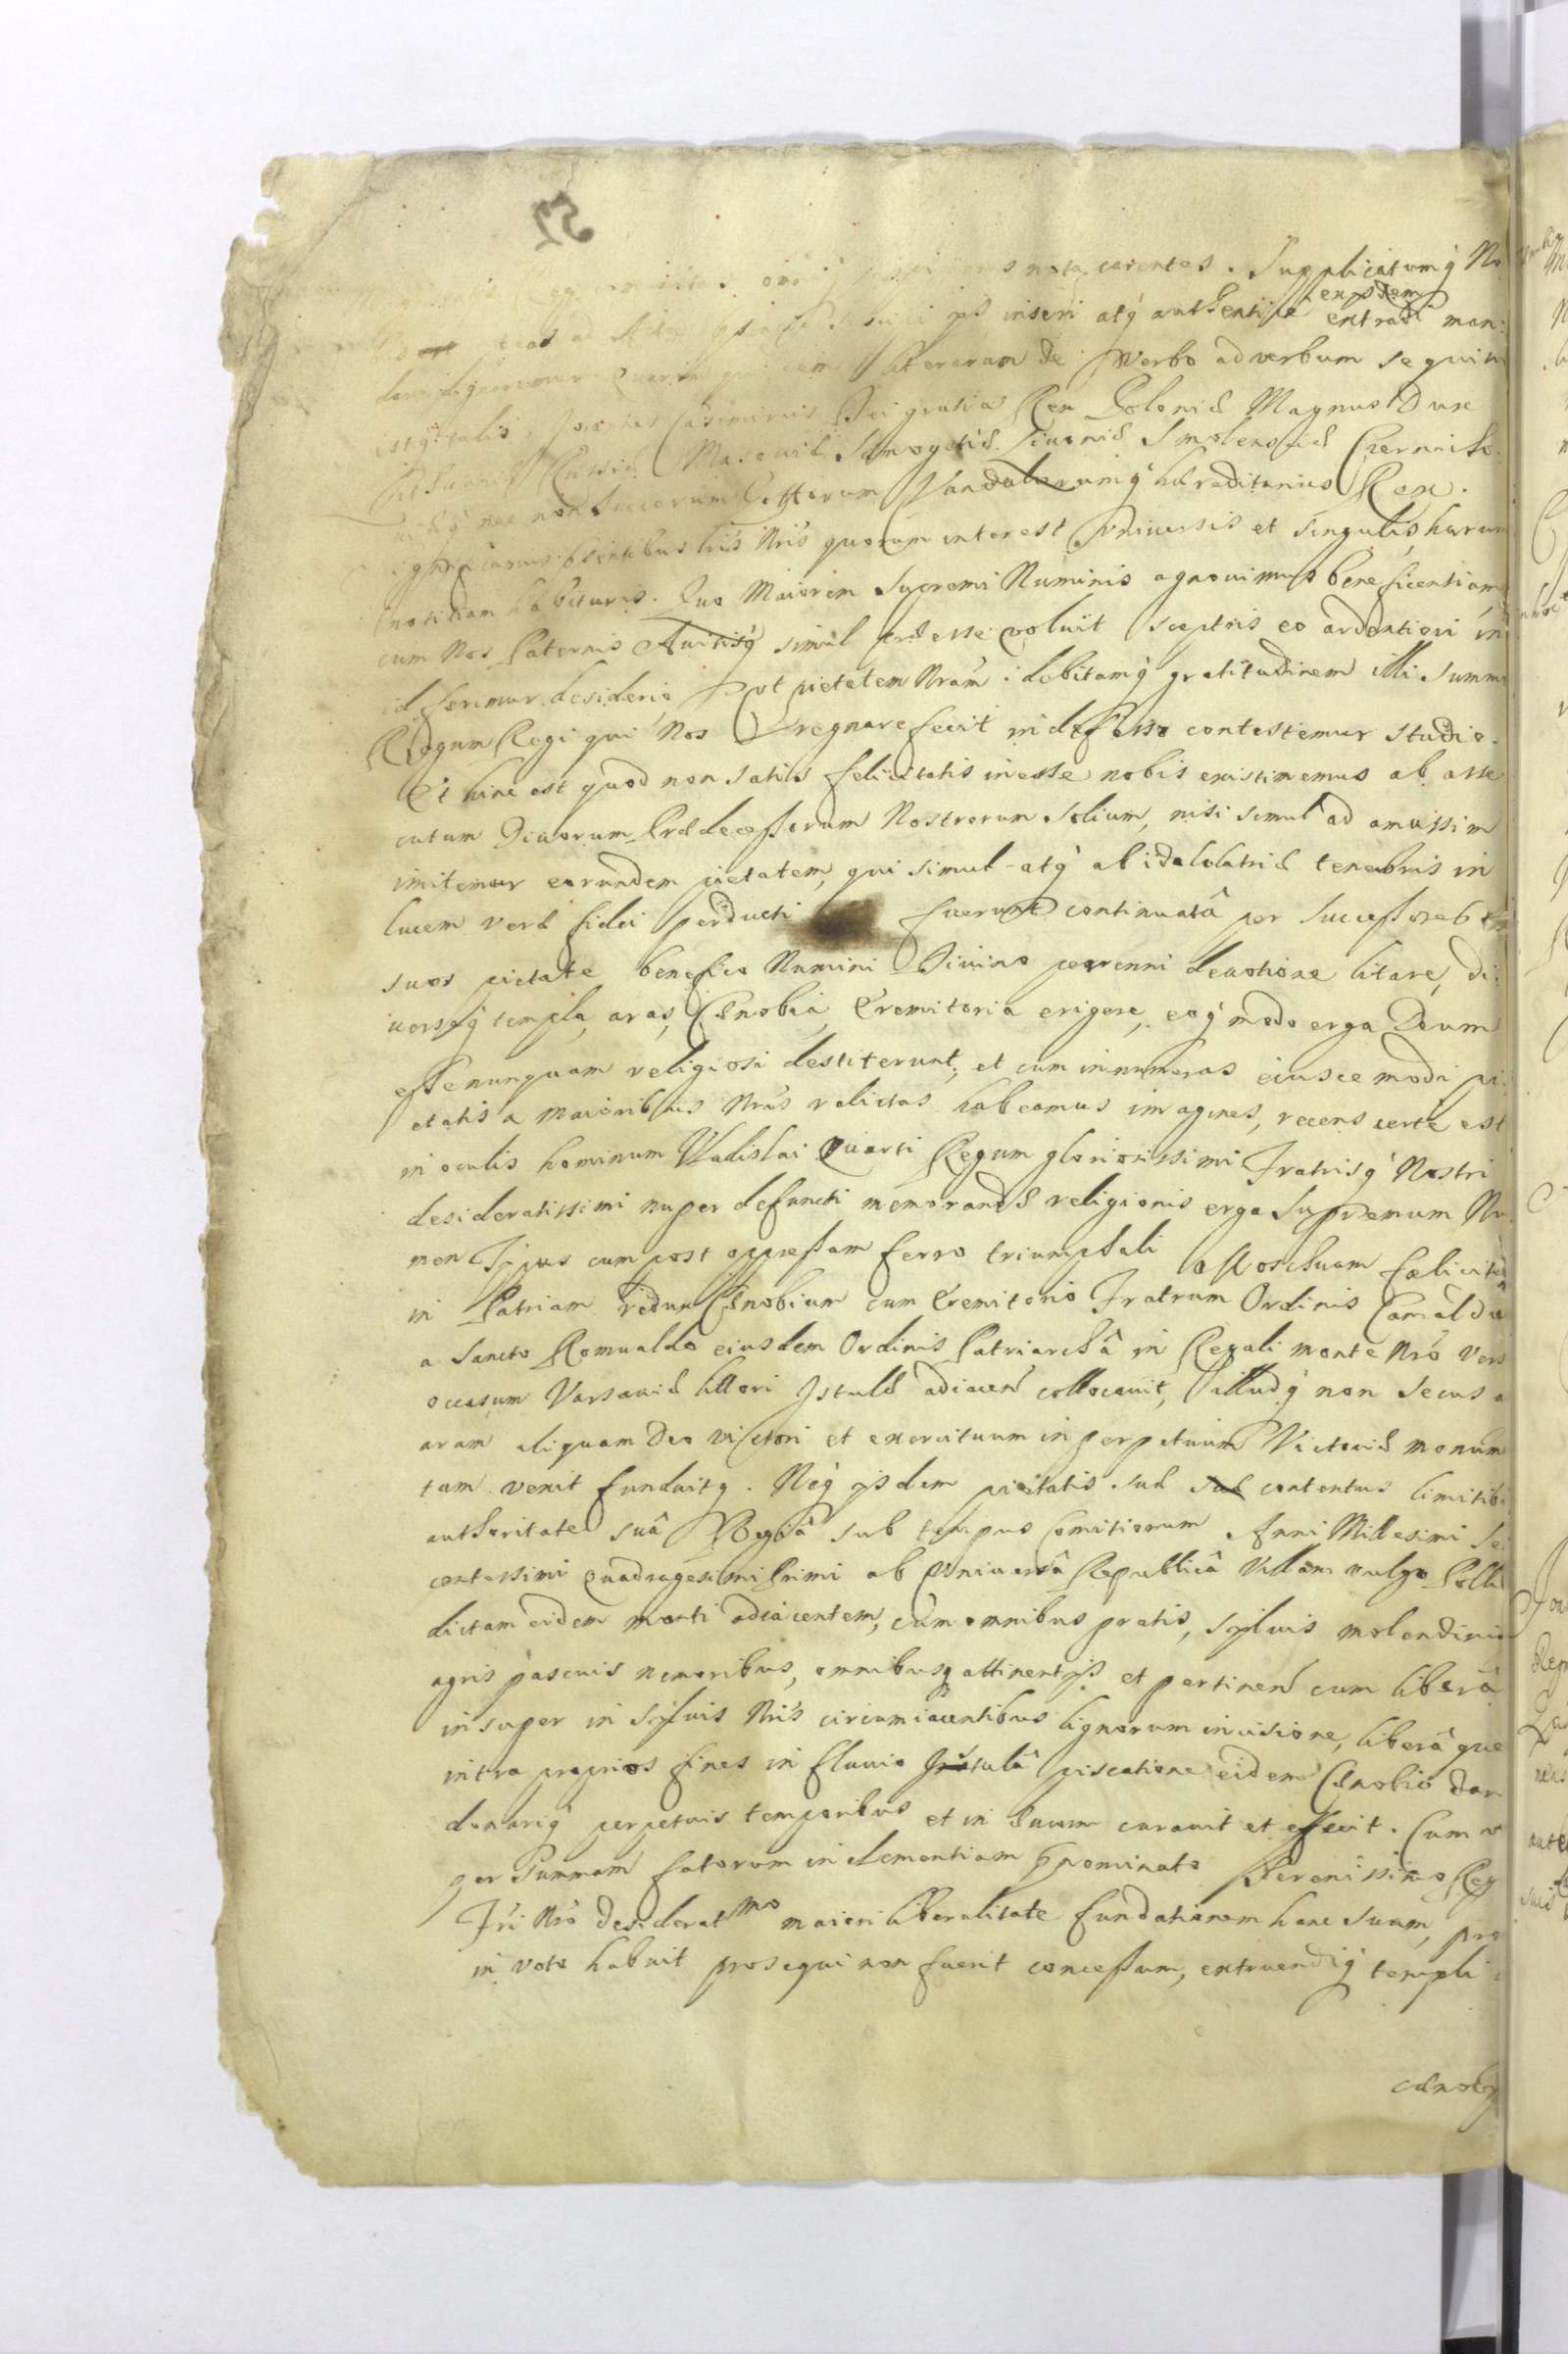 52
nota carentes. Supplicatumq́ No
eastdem
inseri atq́ authentice extradi man:
literarum de Verbo ad verbum sequitur
estq́ talis. Joannes Casimirus Dei gratia Rex Poloniæ Magnus Dux
Lithuaniæ Russiæ Masoviæ Samogitiæ Livoniæ Smolensciæ Czerniho
nec non Suecorum Gottorum Vandalorumq́ hæreditarius Rex.
Significamus pñtibus lris Nris quorum interest vniuersis et singulis, harum
notitiam habituris. Quo Maiorem Supremi Numinis agnouimus beneficentiam,
cum Nos Paternis Auitisq́ simul præesse voluit Sceptris eo ardentiori in
id ferimur desiderio, vt pietatem Nram debitamq́ gratitudinem illi Summo
Regum Regi qui Nos regnare fecit indefesso contestemur studio.
Et hinc est quod non satis felicitatis inesse nobis existimemus ab asse
cutum Diuorum Prædecessorum Nostrorum Solium, nisi simul ad amussim
imitemur eorundem pietatem, qui simul atq́ ab idololatriæ tenebris in
lucem veræ fidei perducti fuerunt continuatâ per Successores
suos pietate benefico Numini Diuino perenni deuotione litare, di:
uersaq́ templa, aras, Cænobia, Eremitoria erigere, eoq́ modo erga Deum
esse nunquam religiosi destiterunt, et cum innumeras eiuscemodi pi:
etatis a maioribus Nris relictas habeamus imagines, recens certè est
in oculis hominum Vladislai Quarti Regum gloriosissimi Fratrisq́ Nostri
desideratissimi nuper defuncti memorandæ religionis erga Supremum Nu
men Typus cum post oppressam ferro triumphali Moschuam fæliciter
in Patriam redux Cænobium cum Eremitorio Fratrum Ordinis Camaldu
a Sancto Romualdo eiusdem Ordinis Patriarchâ in Regali monte Nro vers
occasum Varsauiæ littori Istulæ adiacen collocauit, illudq́ non secus a
aram aliquam Deo victori et exercituum in perpetuum Victoriæ monum
tum venit fundauitq́. Neq́ ijsdem pietatis suæ suæ contentus limitib
authoritate suâ Regiâ sub tempus Comitiorum Anni Millesimi Se
centessimi quadragesimi Primi ab Vniuersâ Republicâ Villam vulgo Polk
dictam eidem monti adiacentem, cum omnibus pratis, syluis molendinis
agris pascuis nemoribus, omnibusq́ attinentijs et pertinen cum liberâ
insuper in syluis Nris circumiacentibus lignorum incisione, liberâ que
intra proprios fines in fluuio Istulâ piscatione eidem Cænobio dar
donariq́ perpetuis temporibus et in æuum curauit et effecit. Cum v
per Summam fatorum inclementiam pnominato Serenissimo Reg
Fri Nro desideratmo maiori liberalitate fundationem hanc suam, pro
in voto habuit prosequi non fuerit concessum, extruendiq́ templi
cænobij